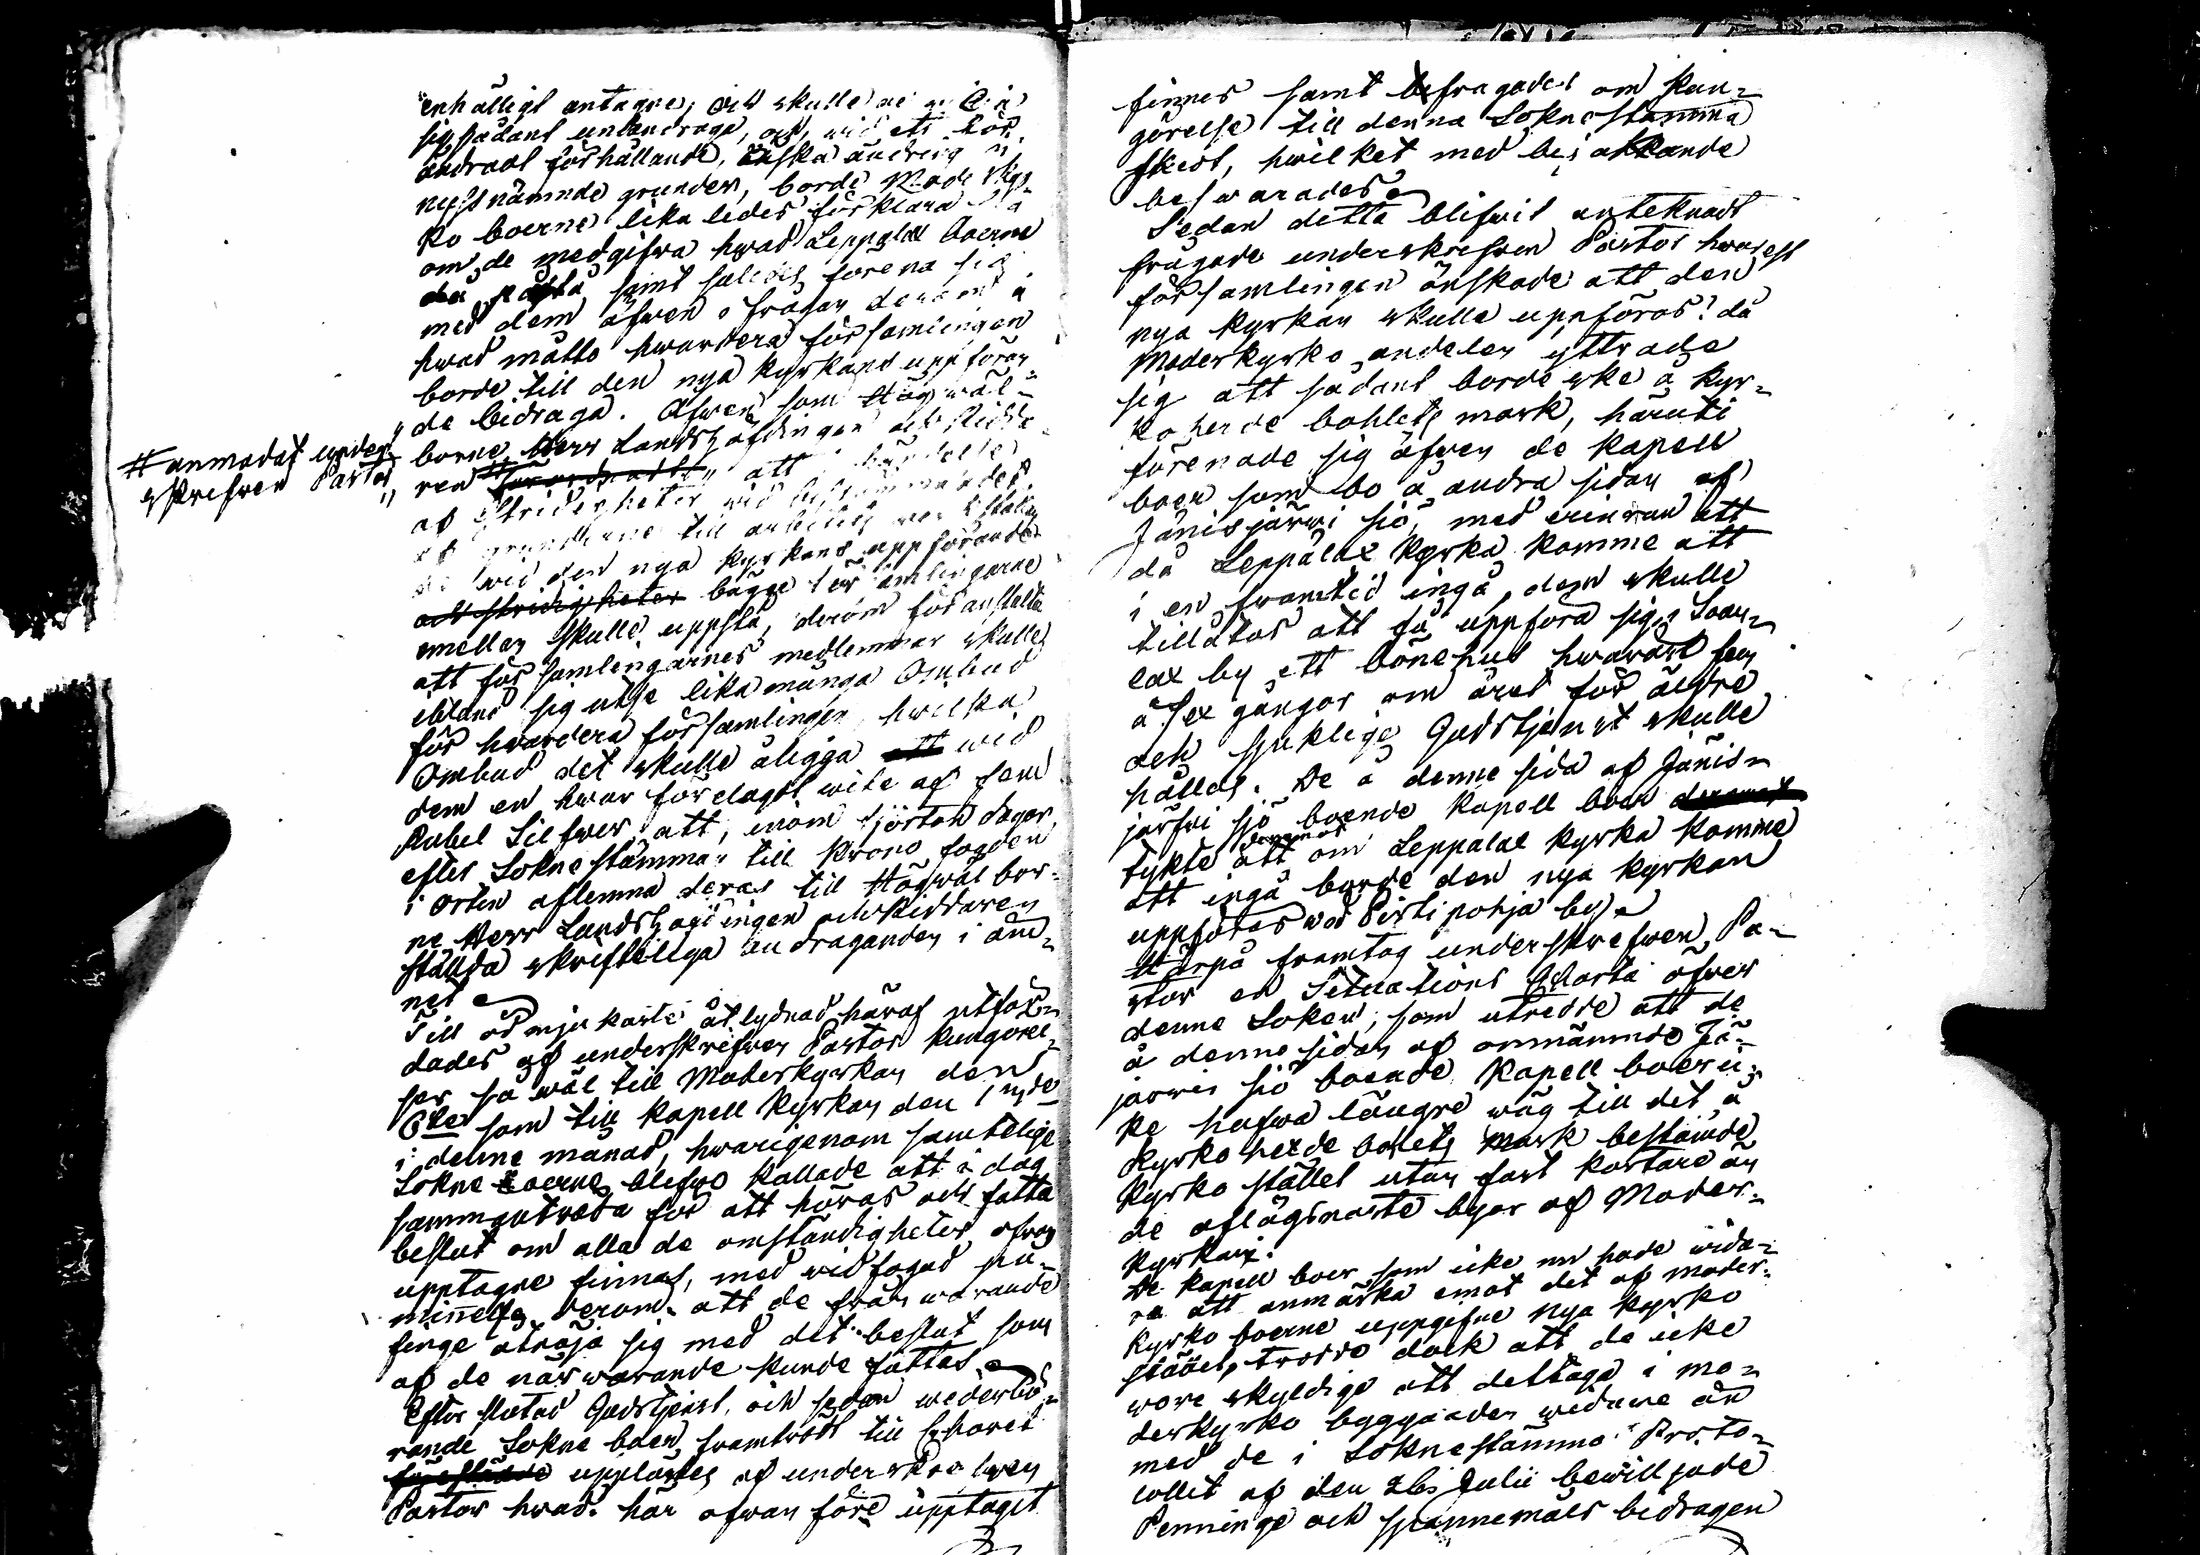 enhälligt antagne, och skulle de
sig sådant undandraga, och, wid ett
ändradt förhållande, önska ändring i
nyss nämnde grunder, borde Moder kyr-
ko boerne lika ledes förklara sig
om de medgifwa hwad Leppälax boerne
samt såledес förena sig
med dem äfwen i frågan derom i
hwad måtto hwardera församlingen
borde till den nya kyrkans uppföran-
de bidraga. Äfwen som Högwäl-
borne Herr Landshöfdingen och Ridda-
# anmodat under-
skrefwen Pastor
ren att i händelse
af stridigheter wid bestämmandet
af grunderna till
wid den nya kyrkans uppförande
och stridigheter bägge församlingarne
emellan skulle uppstå, derom föranstalta
att församlingarnes medlemmar skulle
ibland sig utse lika många Ombud
för hwardera församlingen, hwilka
Ombud det skulle åligga att wid
dem en hwar förelagdt wite af fem
Rubel Silfwer att, inom fjorton dagar
efter Sokne stämman till Krono fogden
i Orten aflemna deras till Högwälbor-
ne Herr Landshöfdingen och Riddaren
ställda skriftliga andraganden i äm-
net
Till ödmjukaste åtlydnad häraf utfär-
dades af underskrefwen Pastor kungörel-
ser så wäl till Moderkyrkan den
6te som till kapell kyrkan den
i denne månad, hwarigenom samtelige
Sokne boerne blefwo kallade att i dag
sammanträda för att höras och fatta
beslut om alla de omständigheter ofwan
upptagne finnas, med widfogad på-
minnelse derom, att de från warande
finge åtnöja sig med det beslut som
af de närwarande kunde fattas
Efter slutad Gudstjenst, och sedan wederbö-
rande Sokne boer framträdt till
upplästes af underskrefwen
Pastor hwad här ofwan före upptaget
finnes samt befrågades om kun-
görelse till denna Sokne stämma
skedt, hwilket med bejakande
beswarades
Sedan detta blifwit antecknadt
frågade underskrefwen Pastor hwarest
församlingen önskade att den
nya kyrkan skulle uppföras? då
Moderkyrko andelen yttrade
sig att sådant borde ske å Kyr-
koherde bohlets mark, häruti
förenade sig äfwen de kapell
boer som bo å andra sidan af
Jänisjärwi sjö, med erinran att
då Leppälax kyrka komme att
i en framtid ingå, dem skulle
tillåtas att få uppföra sig i Soan-
lax by ett bönehus hwaräst fem
à sex gångor om året för äldre
och sjuklige Gudstjenst skulle
hållas. De å denne sida af Jänis-
järfwi sjö boende kapell boer deremot
deremot
tykte att om Leppälax kyrka komme
att ingå borde den nya kyrkan
uppföras wid Pirtipohja by
Härpå framtog underskrefwen Pa-
stor en Situations Charta öfwer
denne Soken, som utredde att de
å denne sidan af omnämnde Jä-
järwi sjö boende kapell boer i-
ke hafwa längre wäg till det å
kyrkoherde bolets mark bestämde
kyrko stället utan fast kortare än
de aflägsnaste byar af Moder-
kyrkan.
De kapell boer som icke nu hade wida-
re att anmärka emot det af moder-
kyrko boerne uppgifne nya kyrko
stället, trodde dock att de icke
wore skyldige att deltaga i mo-
derkyrko byggnaden widare än
med de i Soknestämmo Proto-
collet af den 26 Julii bewilljade
Penninge och spannemåls bidragen